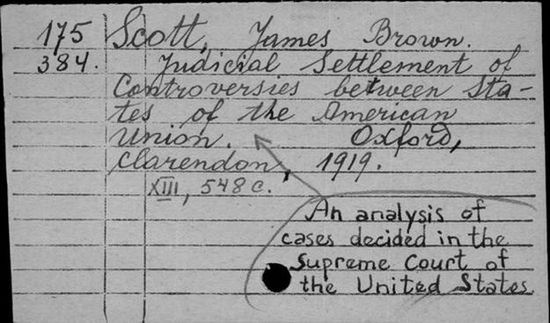 175 Scott, James Brown.
384. Judicial Settlement of
Controversies between Sta-
tes of the American
Union. Oxford,
Clarendon, 1919.
XIII, 548 c.
An analysis of
cases decided in the
Supreme Court of
the United States